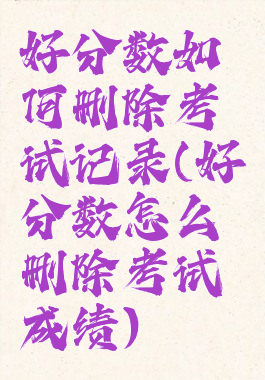 好分数如
何删除考
试记录(好
分数怎么
删除考试
成绩)